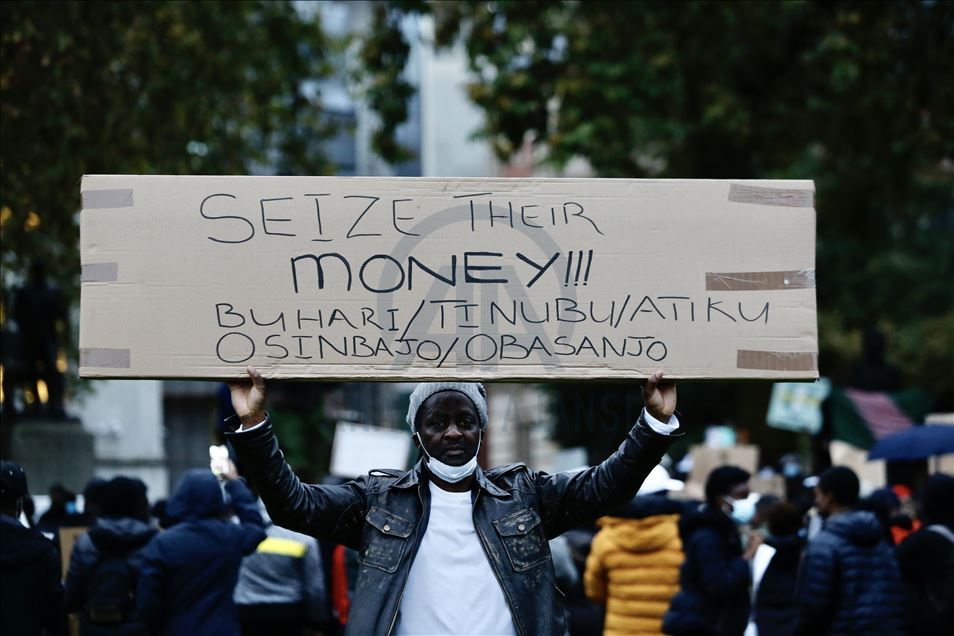 SEIZE THEIR
MONEY!!!
BUHARI/TINUBU/ATIKU
OSINBAJO/OBASANJO